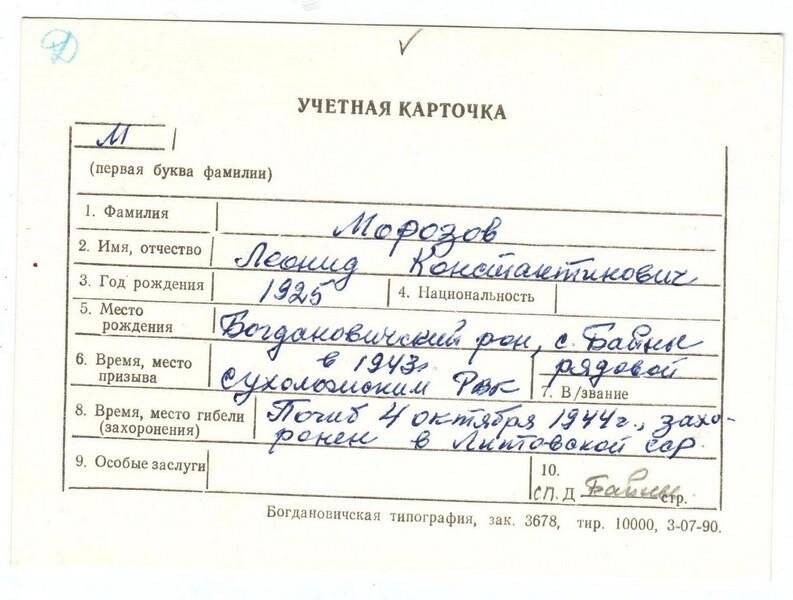 Д
УЧЕТНАЯ КАРТОЧКА
М
(первая буква фамилии)
1. Фамилия Морозов
2. Имя, отчество Леонид Константинович
3. Год рождения 1925 4. Национальность
5. Место рождения Богдановичский рон, с. Байны
6. Время, место призыва в 1943г. Сухоложским РВК
рядовой
7. В/звание
8. Время, место гибели Погиб 4 октября 1944г., захо-
(захоронения) ронен в Литовской ССР.
9. Особые заслуги
10.
СП. Д Байны стр.
Богдановичская типография, зак. 3678, тир. 10000, 3-07-90.